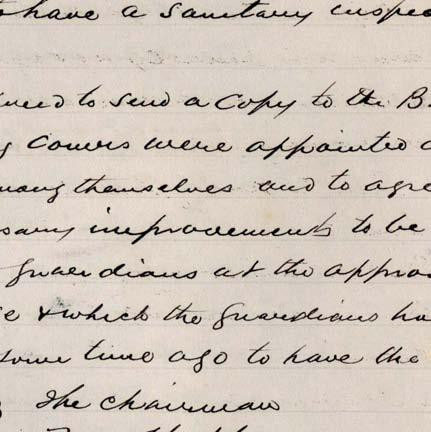 have a sanitary inspec
to send a Copy to the B.
comrs were appointed
among themselves and to agre
improvements to be
guardians at the approa
& which the guardians ha
some time ago to have the
The chairman